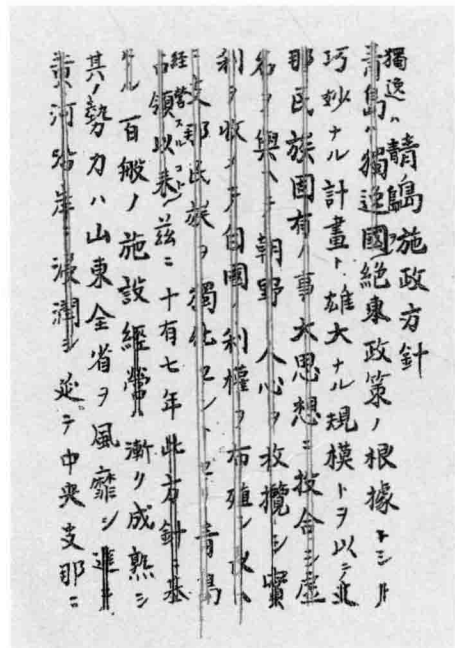 靑島施政方針
獨逸ハ
靑島ハ獨逸國絶東政策ノ根據トシ
巧妙ナル計畫ト雄大ナル規模トヲ以テ
那民族固有ノ事大思想ニ投合シ虛
名ヲ與ヘテ朝野ノ人心ヲ收攬シ實
利ヲ收メテ自國ノ利權ヲ布殖シ以
支那民族ヲ獨化セントセリ青島
経営スルコト
占領以来茲ニ十有七年此方針ニ基
ケル百般ノ施設經營漸ク成熟シ
其ノ勢力ハ山東全省ヲ風靡シ進
黄河沿岸ニ浸潤シ延テ中央支那ニ